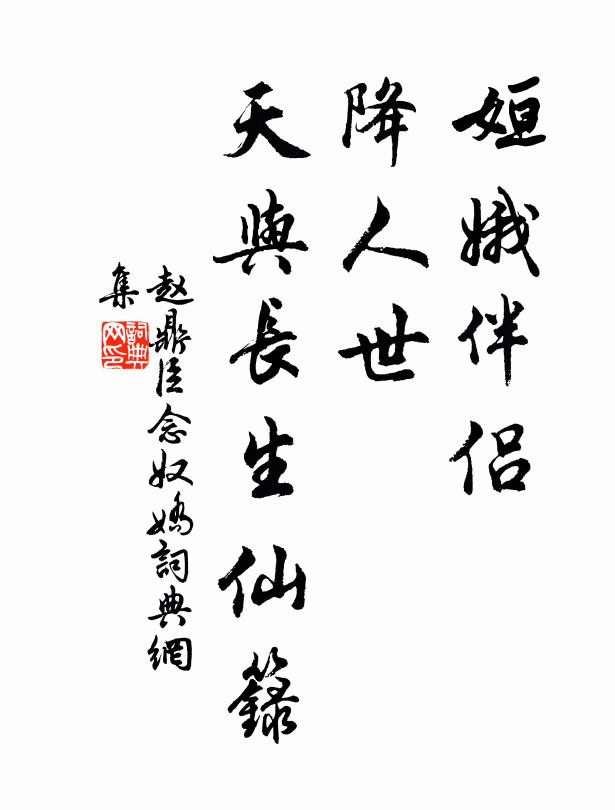 姮娥伴侣
降人世
天與長生仙籙
赵鼎臣念奴嬌詞典網
集
詞典
网印